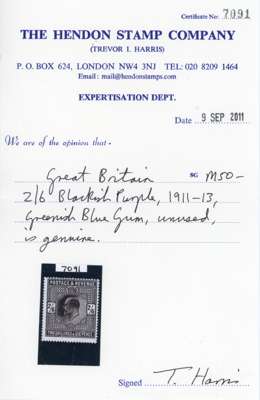 Certificate No: 7091
THE HENDON STAMP COMPANY
(TREVOR I. HARRIS)
P. O. BOX 624, LONDON NW4 3NJ TEL: 020 8209 1464
Email: mail@hendonstamps.com
EXPERTISATION DEPT.
Date 9 SEP 2011
We are of the opinion that -
Great Britain SG M50-
2/6 Blackish Purple, 1911-13,
Greenish Blue Gum, unused,
is genuine.
7091
POSTAGE & REVENUE
2/6 2/6
TWO SHILLINGS & SIXPENCE
Signed T. Harris